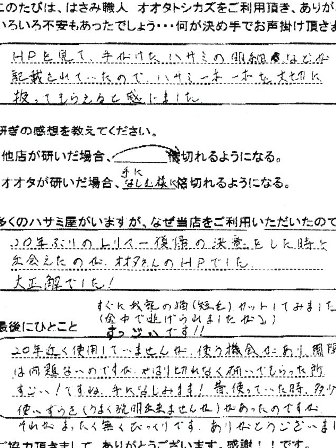 このたびは、はさみ職人 オオタトシカズをご利用頂き、ありが
いろいろ不安もあったでしょう・・・何が決め手でお声掛け頂きま
HPを見て、手がけたハサミの明細などが
記載されていたので ハサミ一本一本を大切に
扱ってもらえると感じました。
研ぎの感想を教えてください。
他店が研いだ場合、 切れるようになる。
オオタが研いだ場合、手になじむ様に 切れるようになる。
多くのハサミ屋がいますが、なぜ当店をご利用いただいたので
20年ぶりのトリマー復帰の決意をした時に
出会えたのが、オオタさんのHPでした。
大正解でした!
すぐに我家の猫(短毛)カットしてみました
(途中で逃げられましたが)
最後にひとこと すっごいです!!
20年近く使用していませんが、使う機会があり
は問題ないのですが、やはり切れなく研いでもらった所
すごい!ですね、手になじみます! 昔使っていた時、多少
使いずらさ(うまく説明出来ませんが)があったのですが
それがまったく無くびっくりです。ありがとうございま
ご協力頂きまして、ありがとうございます。感謝!!です。